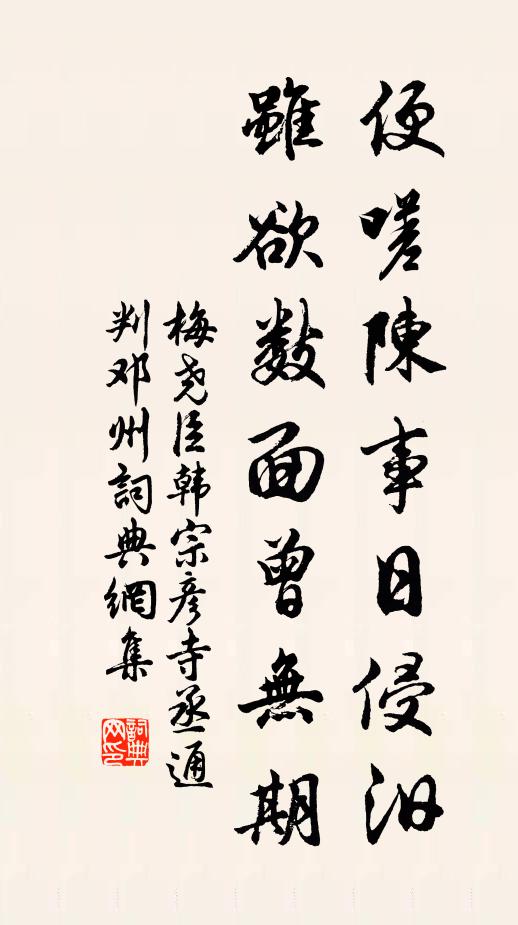 便嗟陳事日侵汩
雖欲數面曾無期
梅尧臣韩宗彦寺丞通
判邓州詞典網集
詞典网印